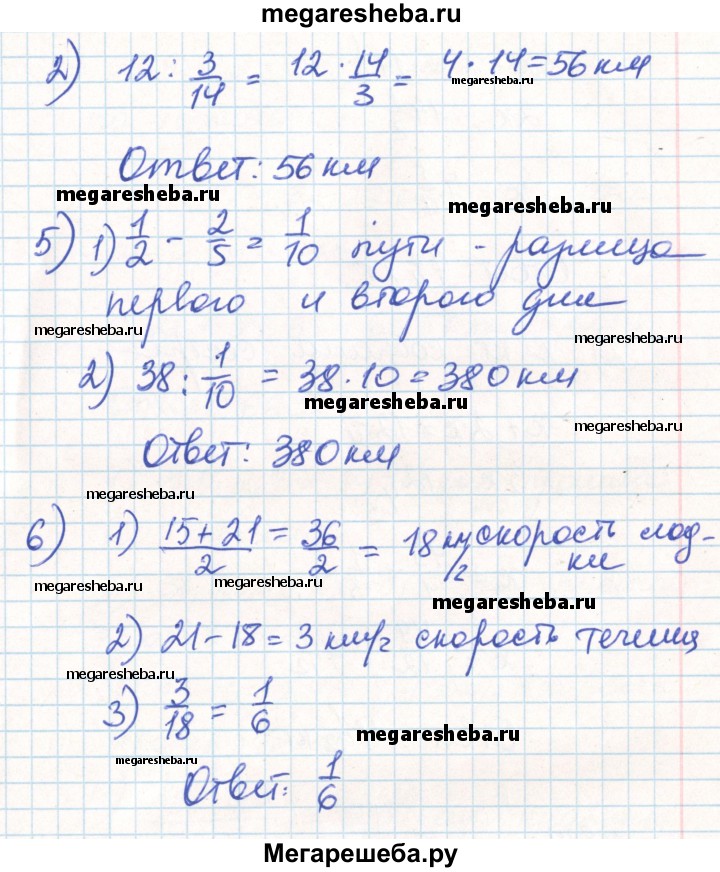 megaresheba.ru
2) 12 : 3/14 = 12 · 14/3 = 4 · 14 = 56 км
megaresheba.ru
Ответ: 56 км
megaresheba.ru
megaresheba.ru
5) 1) 1/2 - 2/5 = 1/10 пути - разница
первого и второго дня
megaresheba.ru
megaresheba.ru
2) 38 : 1/10 = 38 · 10 = 380 км
megaresheba.ru
megaresheba.ru
Ответ: 380 км
megaresheba.ru
6) 1) 15+21/2 = 36/2 = 18 км/г скорость лод-
ки
megaresheba.ru
megaresheba.ru
megaresheba.ru
2) 21 - 18 = 3 км/г скорость течениц
megaresheba.ru
3) 3/18 = 1/6
megaresheba.ru
megaresheba.ru
Ответ: 1/6
Мегарешеба.ру